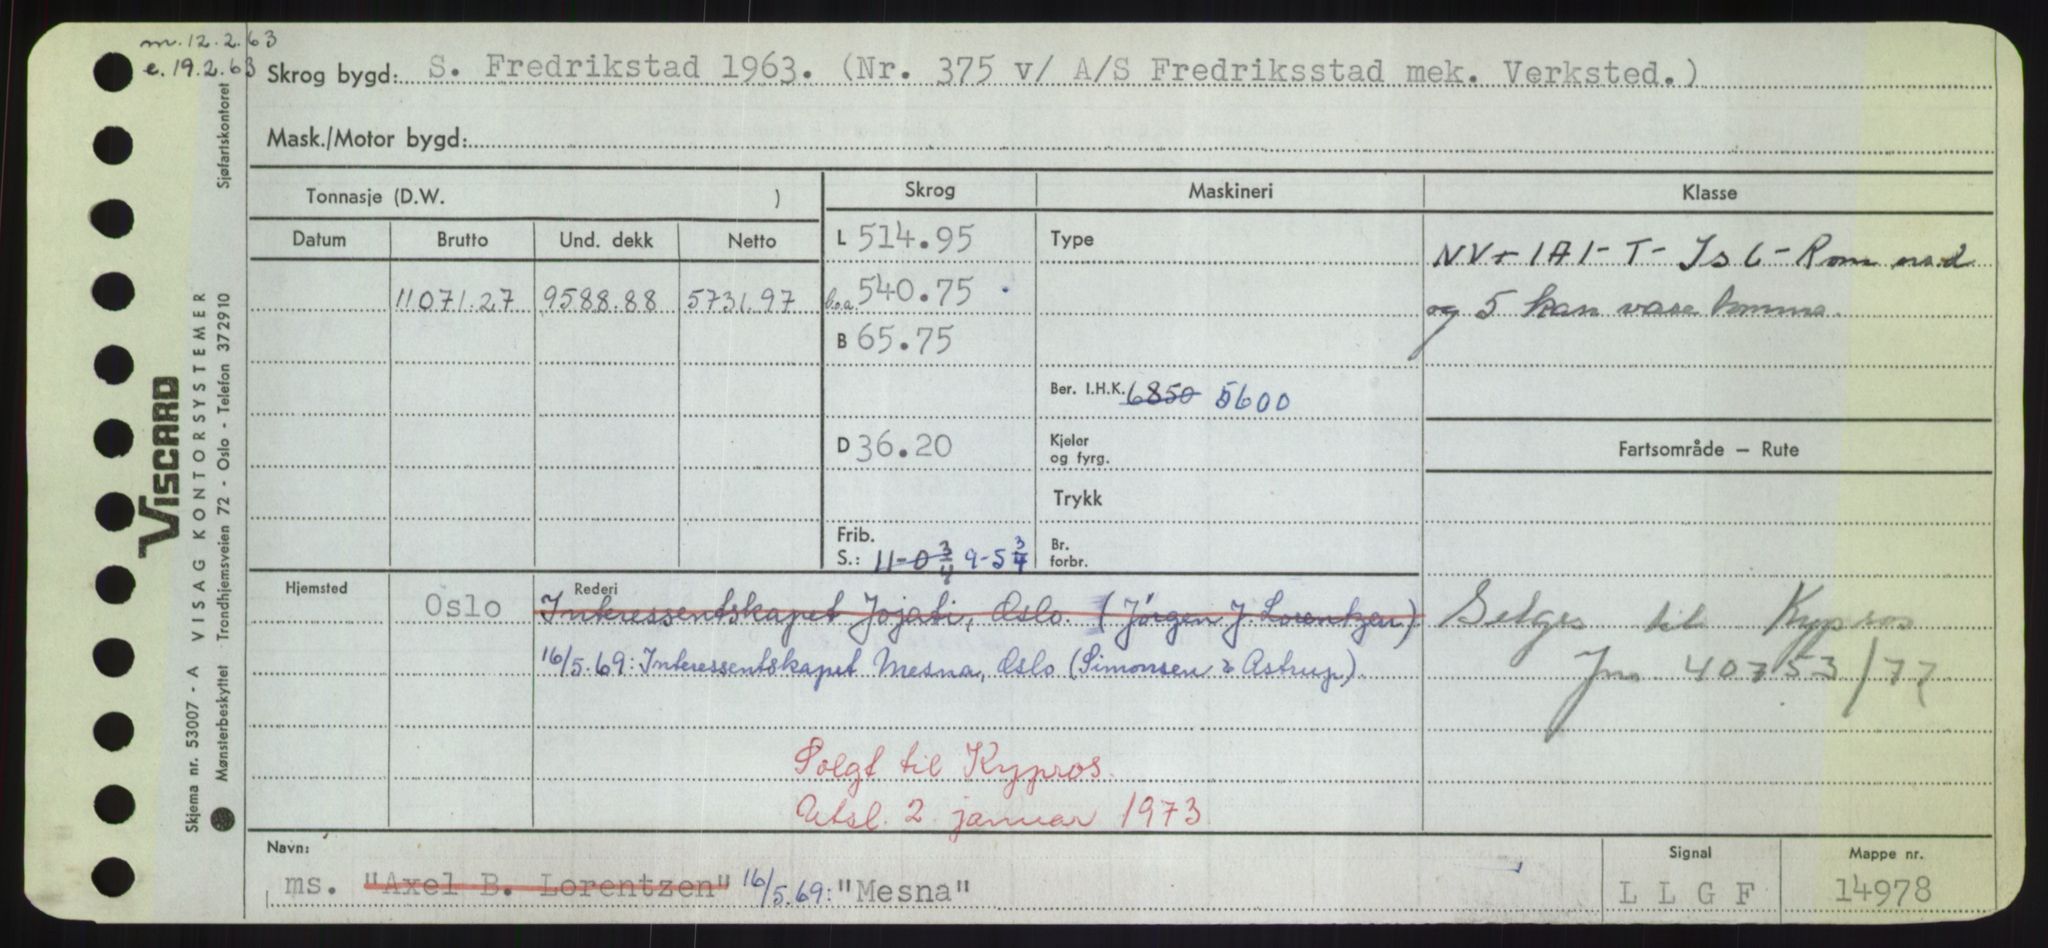 m. 12.2.63
e. 19.2.63
Skrog bygd: S. Fredrikstad 1963. (Nr. 375 v/ A/S Fredriksstad mek. Verksted.)
Mask./Motor bygd:
Tonnasje (D.W. )
Skrog
Maskineri
Klasse
Datum
Brutto
Und. dekk
Netto
11071.27
9588.88
5731.97
L 514.95
l.o.a. 540.75
B 65.75
D 36.20
Frib.
S.: 11-0 3/4 9-5 3/4
Type
Ber. I.H.K. 6850 5600
Kjeler
og fyrg.
Trykk
Br.
forbr.
NV+ 1A1-T-Is C-Rom nr. 2
og 5 kan være tomme.
Fartsområde – Rute
Hjemsted
Oslo
Rederi
Interessentskapet Jojati, Oslo. (Jörgen J. Lorentzen)
16/5.69: Interessentskapet Mesna, Oslo (Simonsen & Astrup).
Selges til Kypros
Jnr. 40753/72
Solgt til Kypros.
Utsl. 2. januar 1973
Navn:
ms. "Axel B. Lorentzen" 16/5.69: "Mesna"
Signal
L L G F
Mappe nr.
14978
VISCARD
Skjema nr. 53007 - A VISAG KONTORSYSTEMER
Mønsterbeskyttet Trondhjemsveien 72 - Oslo - Telefon 372910
Sjøfartskontoret